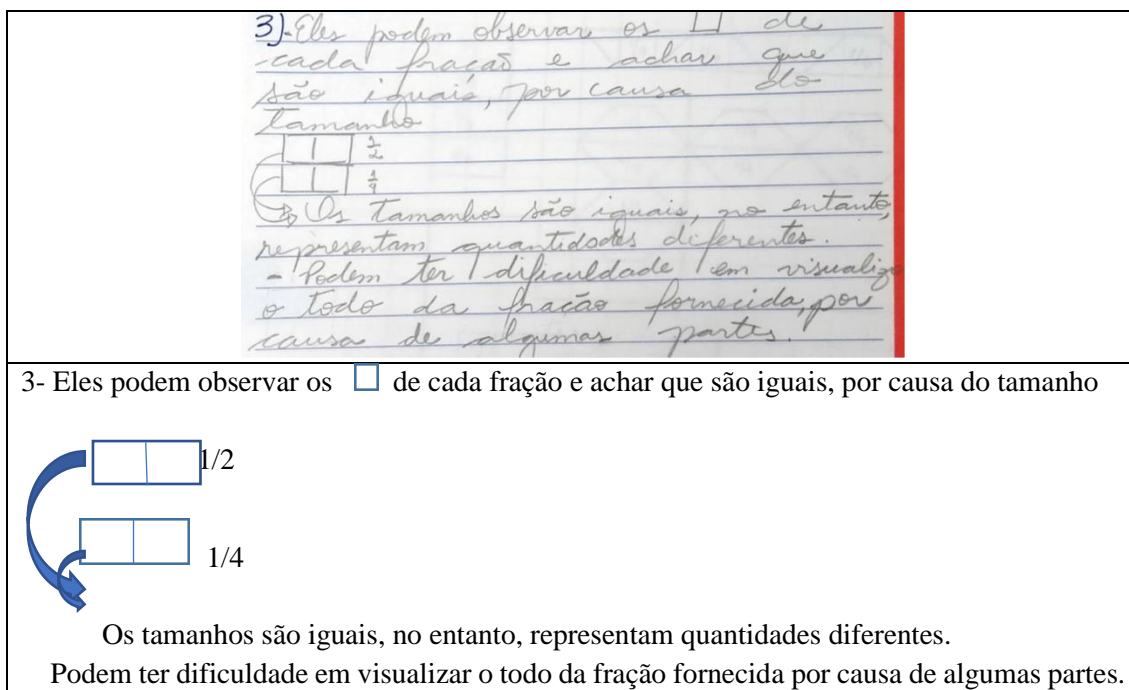 3)-Eles podem observar os □ de
-cada fração e achar que
são iguais, por causa do
tamanho
1/2
1/4
Os tamanhos são iguais, no entanto,
representam quantidades diferentes.
- Podem ter dificuldade em visualiza
o todo da fração fornecida, por
causa de algumas partes.
3- Eles podem observar os □ de cada fração e achar que são iguais, por causa do tamanho
1/2
1/4
Os tamanhos são iguais, no entanto, representam quantidades diferentes.
Podem ter dificuldade em visualizar o todo da fração fornecida por causa de algumas partes.